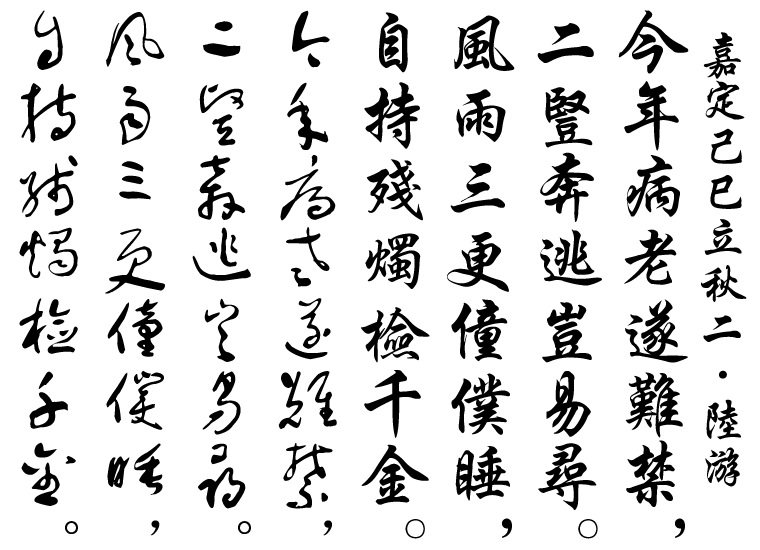 嘉定己巳立秋二·陸游
今年病老遂難禁，
二豎奔逃豈易尋。
風雨三更僮僕睡，
自持殘燭檢千金。
今年病老遂難禁，
二豎奔逃豈易尋。
風雨三更僮僕睡，
自持殘燭檢千金。